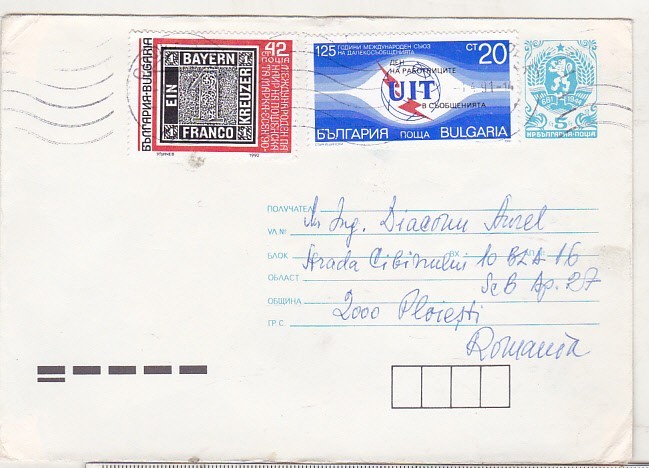 БЪЛГАРИЯ-BULGARIA
42
ПОЩА
BAYERN
EIN
KREUZER
FRANCO
1
1990
125 ГОДИНИ МЕЖДУНАРОДЕН СЪЮЗ
НА ДАЛЕКОСЪОБЩЕНИЯТА
СТ 20
ДЕН
НА РАБОТНИЦИТЕ
UIT
В СЪОБЩЕНИЯТА
БЪЛГАРИЯ ПОЩА BULGARIA
681 1944
5
НР БЪЛГАРИЯ·ПОЩА
ПОЛУЧАТЕЛ Ing. Diaconu Aurel
УЛ №
БЛОК ВХ АП
Strada Cibinului 10 Bl A-16
ОБЛАСТ
Sc B Ap. 27
ОБЩИНА
2000 Ploiești
ГР С
Romania